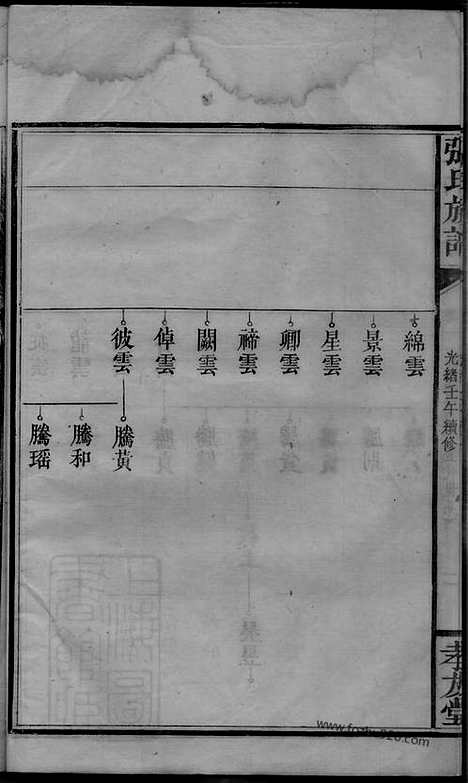 張氏族譜
光緒壬午續修
孝友堂
綿雲
景雲
星雲
卿雲
禘雲
闕雲
倬雲
彼雲
騰黃
騰和
騰瑤
www.fozhu920.com